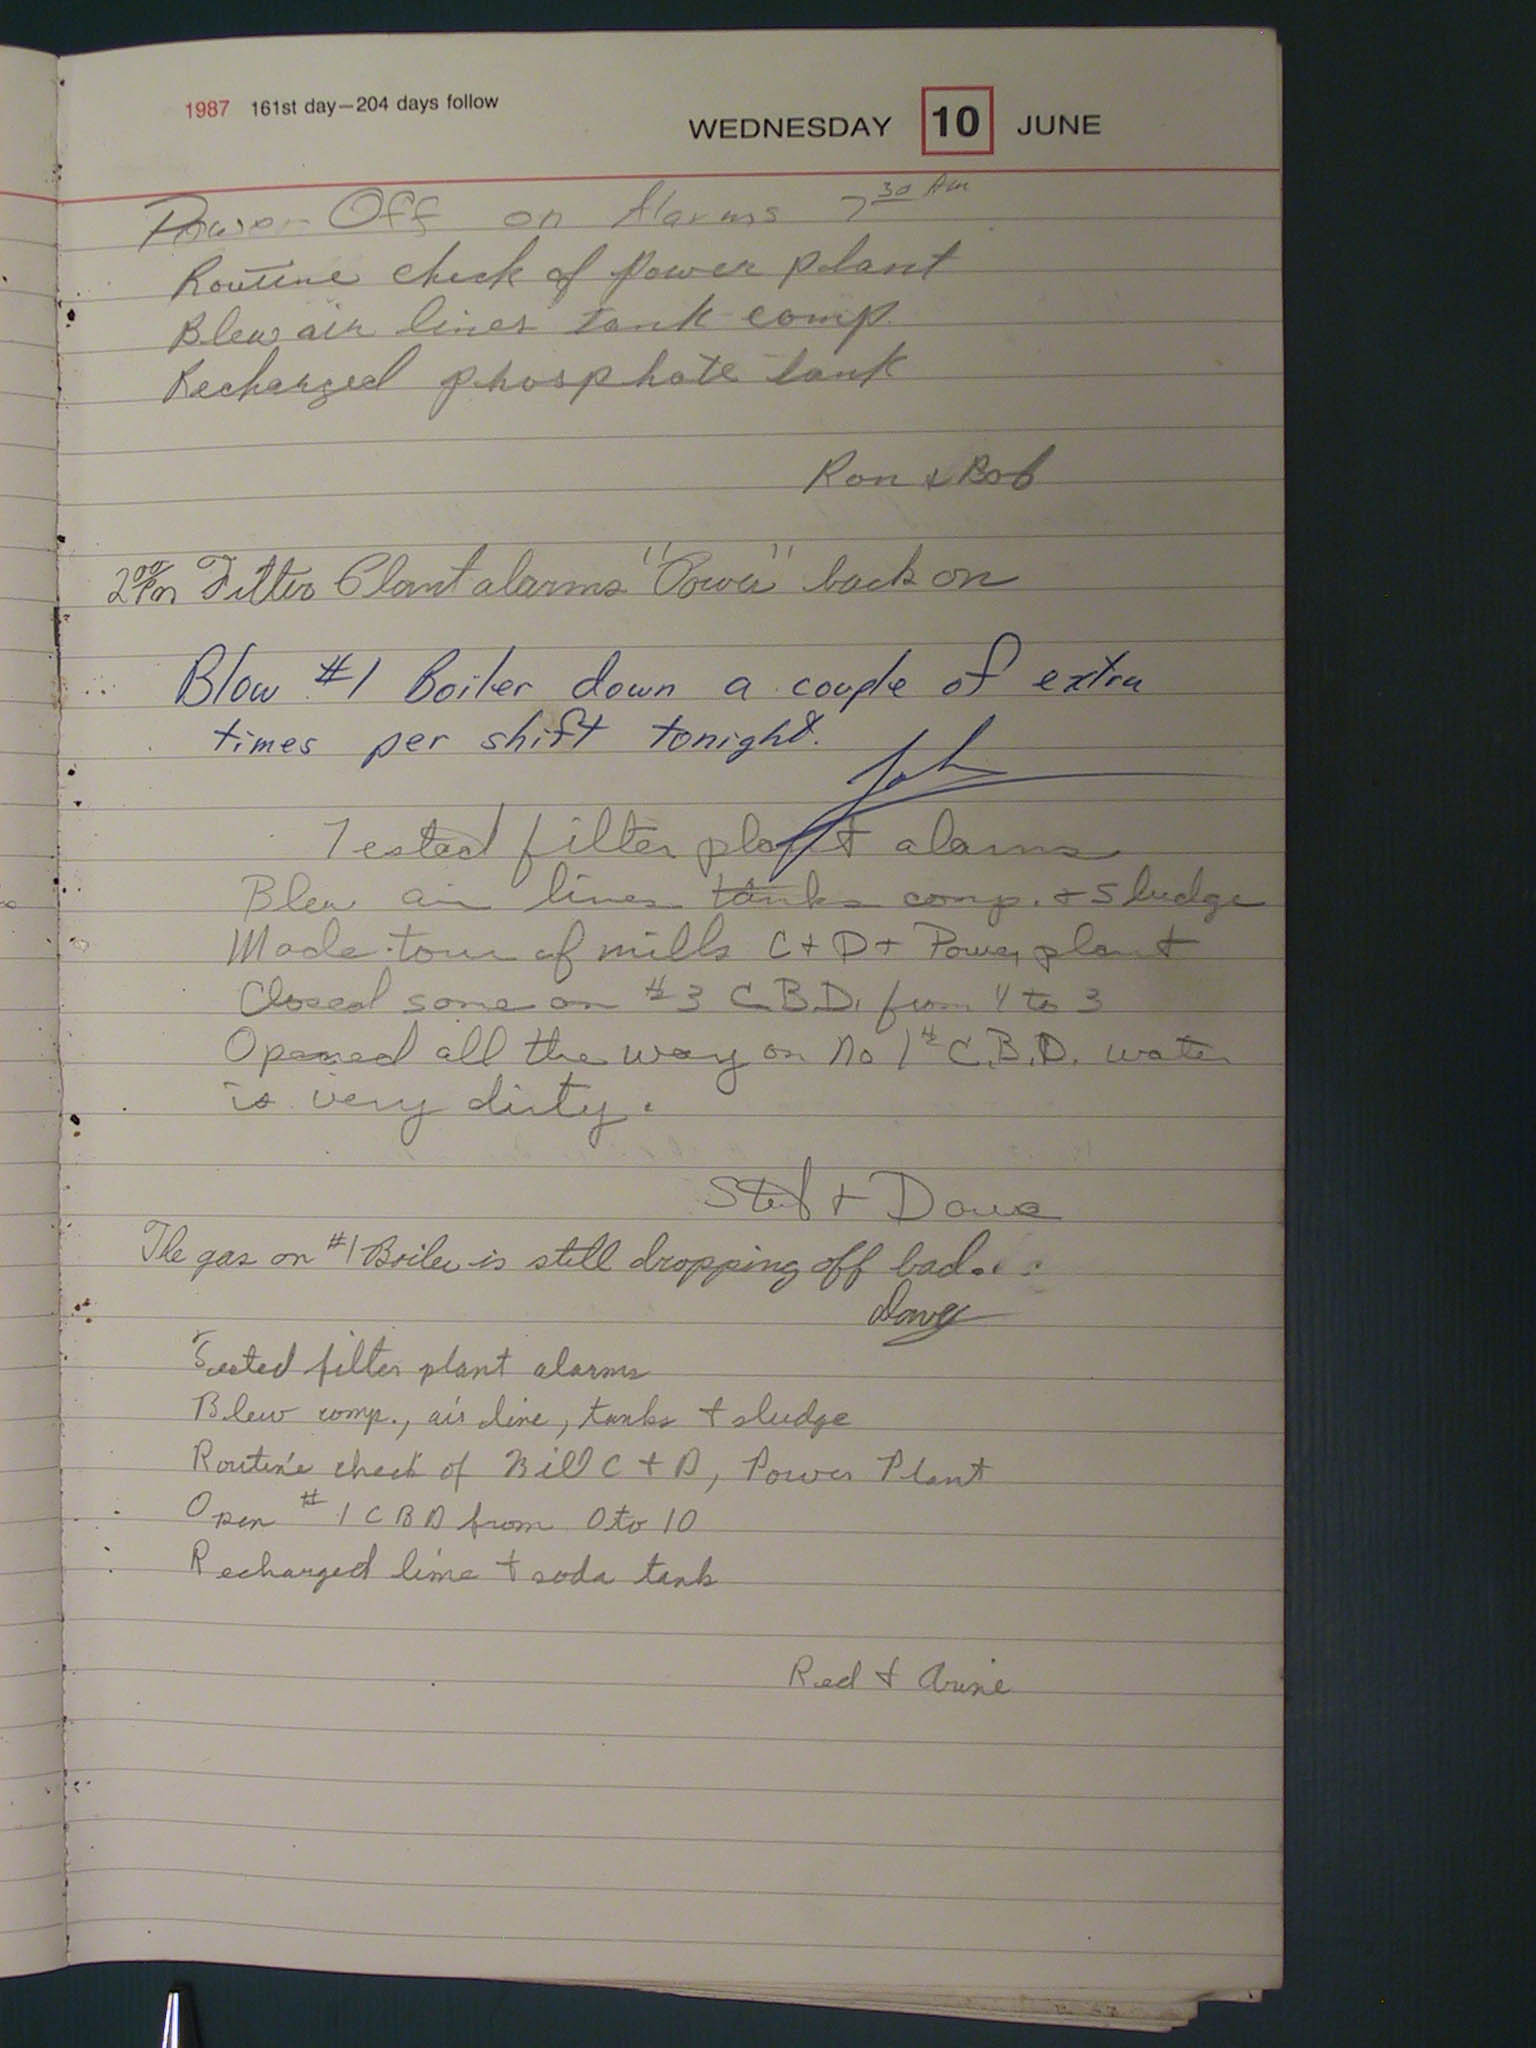 1987 161st day—204 days follow
WEDNESDAY 10 JUNE
Power Off on Alarms 7 30 Am
Routine check of power plant
Blew air lines tank comp.
Recharged phosphate tank
Ron & Bob
2 00 Pm Filter Plant alarms "Power" back on
Blow #1 Boiler down a couple of extra
times per shift tonight.
Tested filter plant alarms
Blew air lines tanks comp. + Sludge
Made tour of mills C + D + Power plant
Closed some on #3 C.B.D. from 4 to 3
Opened all the way on No 1 # C.B.D. water
is very dirty.
+ Dave
The gas on #1 Boiler is still dropping off bad...
Tested filter plant alarms
Blew comp., air line, tanks + sludge
Routine check of Mill C + D, Power Plant
Open #1 C B D from 0 to 10
Recharged lime + soda tank
Red + Arine